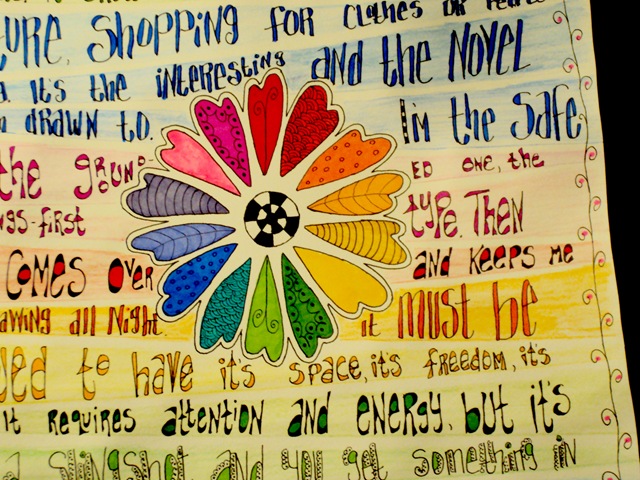 ture, Shopping for Clothes or
it's the interesting and the Novel
drawn to. I'm the Safe
the ground ed one, the
ngs-first type. Then
Comes over and keeps me
awing all Night. it must be
to have it's space, it's freedom, it's
it requires attention and energy, but it's
a slingshot and you get something in